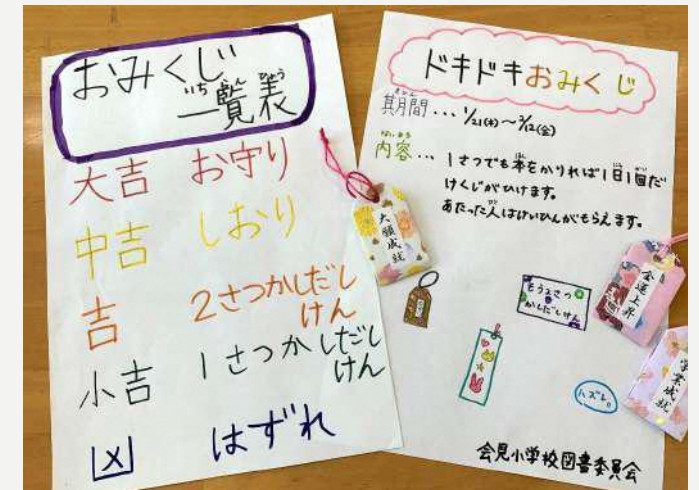 おみくじ
いちらんひょう
一覧表
大吉 お守り
中吉 しおり
吉 2さつかしだし
けん
小吉 1さつかしだし
けん
凶 はずれ
大願成就
ドキドキおみくじ
きかん
期間... 1/21(木)〜2/12(金)
ないよう
内容... 1さつでも本をかりれば1日1回だ
けくじがひけます。
あたった人はけいひんがもらえます。
もう2さつ
かしだしけん
金運上昇
学業成就
ハズレ。
会見小学校図書委員会